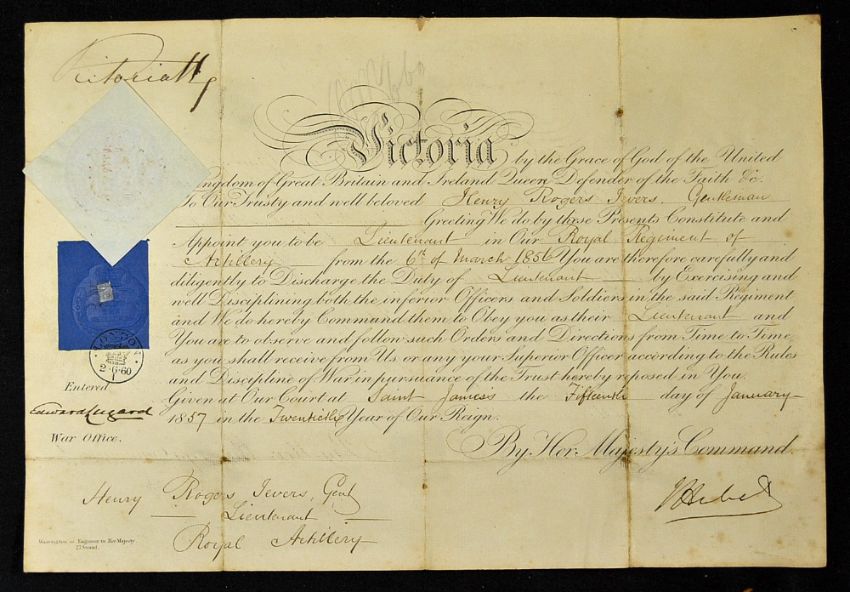 Victoria R
Victoria by the Grace of God of the United
Kingdom of Great Britain and Ireland Queen Defender of the Faith &c.
To Our Trusty and well beloved Henry Rogers Ievers, Gentleman
Greeting We do by these Presents Constitute and
Appoint you to be Lieutenant in Our Royal Regiment of
Artillery from the 6th of March 1856 You are therefore carefully and
diligently to Discharge the Duty of Lieutenant by Exercising and
well Disciplining both the inferior Officers and Soldiers in the said Regiment
and We do hereby Command them to Obey you as their Lieutenant and
You are to observe and follow such Orders and Directions from Time to Time
as you shall receive from Us or any your Superior Officer according to the Rules
and Discipline of War in pursuance of the Trust hereby reposed in You.
Given at Our Court at Saint James's the Fifteenth day of January
1857 in the Twentieth Year of Our Reign.
By Her Majesty's Command.
LONDON
60
Entered
Edward Lugard
War Office.
Henry Rogers Ievers, Gent
Lieutenant
Royal Artillery
Engraver to Her Majesty,
Strand.